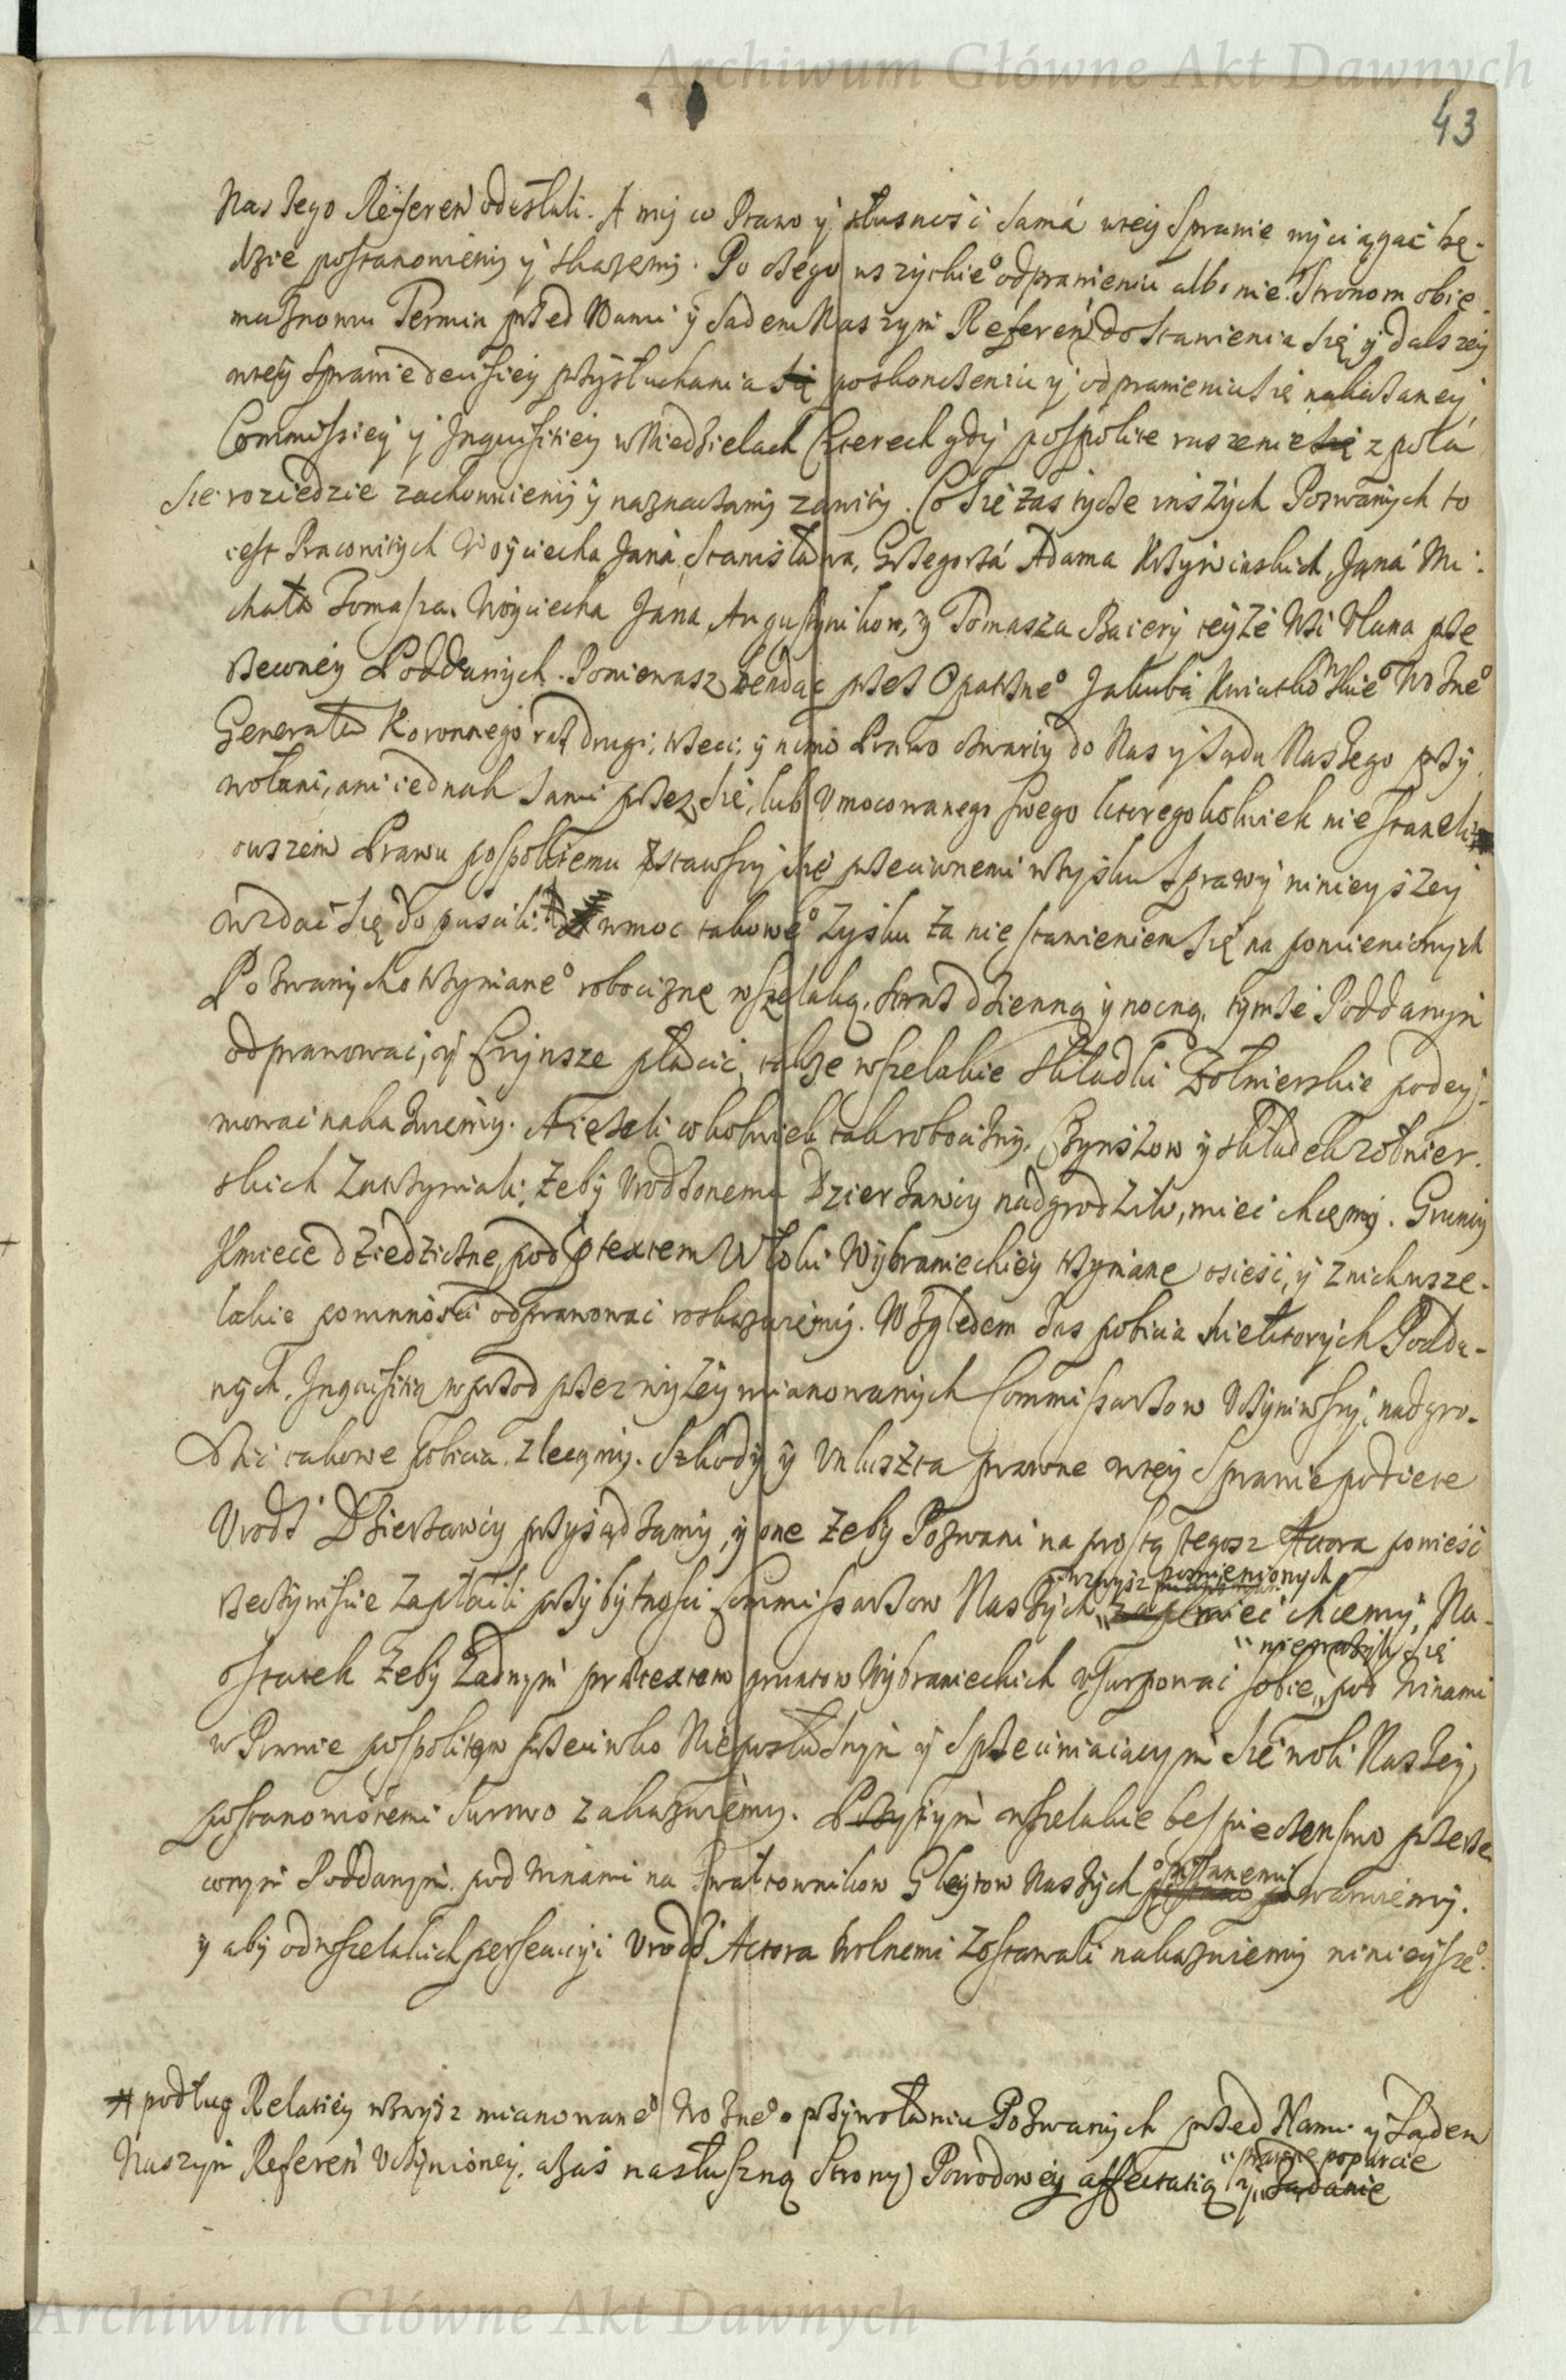 Archiwum Główne Akt Dawnych
43
Naszego Referen̄ odesłali. A my co Prawo y słusność sama wtey Sprawie wyciągać bę-
dzie postanowiemy y skażemy. Po czego wszytkie͠o odprawieniu albo nie. Stronom obie-
ma Znowu Termin przed Nami y Sądem Naszym Referen̄ do stawienia się y dalszey
wtey Sprawie decisiey przysłuchania się poskończeniu y odprawieniu się nakazaney
Commissiey y Inquisitiey w Niedzielach Czterech gdy pospolite ruszenie się z pola
się roziedzie zachowuiemy y naznaczamy zawity. Co się zas tycze inszych Pozwanych to
iest Pracowitych Woyciecha Jana, Stanisława, Grzegorza Adama Krzywinskich, Jana Mi-
chała Tomasza, Woyciecha Jana Augustynikow, y Tomasza Baciery teyże Wsi
rzeczoney Poddanych. Ponieważ będąc przez Opatrzne͠o Jakuba Kwiatkowskie͠o Woźne͠o
Generała Koronnego raz, drugi, trzeci, y nimo Prawo czwarty do Nas y sądu Naszego przy
wołani, ani iednak sami przez się, lub Umocowanego swego ktoregokolwiek nie staneli,
owszem Prawu pospolitemu zstawszy się przeciwnemi wzysku Sprawy ninieyszey
wzdać się dopuscili. wmoc takowe͠o Zysku za nie stawieniem się na pomienionych
Pozwanych robociznę wszelaką, dzienną y nocną, tymże Poddanym
odprawować, y Czynsze płacić, także wszelakie składki Zołnierskie podey-
mować nakazuiemy. A ieżeli cokolwiek tak robocizny, Czynszow y składek zołnier-
skich Zatrzymali, żeby Urodzonemu Dzierżawcy nadgrodzili, mieć chcemy. Grunty
Kmiece dziedziczne, pod praetextem Włoki Wybranieckiey trzymane osieść, y z nich wsze-
lakie powinności odprawować roskazuiemy. Względem zas pobicia niektorych Podda-
nych, Inquisitią wprzod przez wyżey mianowanych Commissarzow Uczyniwszy, nadgro-
dzić takowe pobicia zlecamy. Szkody y Unkoszta prawne wtey Sprawie podięte
Urodz̄ Dzierżawcy przysądzamy, y one żeby Pozwani na prostą tegosz Actora powieść
rzeczywiście zapłacili przy bytnosci Commissarzow Naszych wzwysz pomienionych mieć chcemy, Na-
ostatek żeby żadnym praetextem gruntow Wybranieckich usurpować sobie nieważyli się pod Winami
w Prawie pospolitym przeciwko Nieposłusznym y Sprzeciwiaiącym się woli Naszey,
postanowionemi surowo zakazuiemy. Przytym wszelakie bespieczenstwo przerze-
czonym Poddanym pod winami na Gwałtownikow Gleytow Naszych opisanemi waruiemy.
y aby od wszelakich persecuciyi Urodz̄ Actora wolnemi zostawali nakazuiemy ninieysze͠o.
# podług Relatiey wzwysz mianowane͠o Woźne͠o o przywołaniu Pozwanych przed Nami y Sądem
Naszym Referen̄ Uczynioney, a zaś na słuszną Strony Powodowey affectatią y prawne poparcie
Archiwum Główne Akt Dawnych